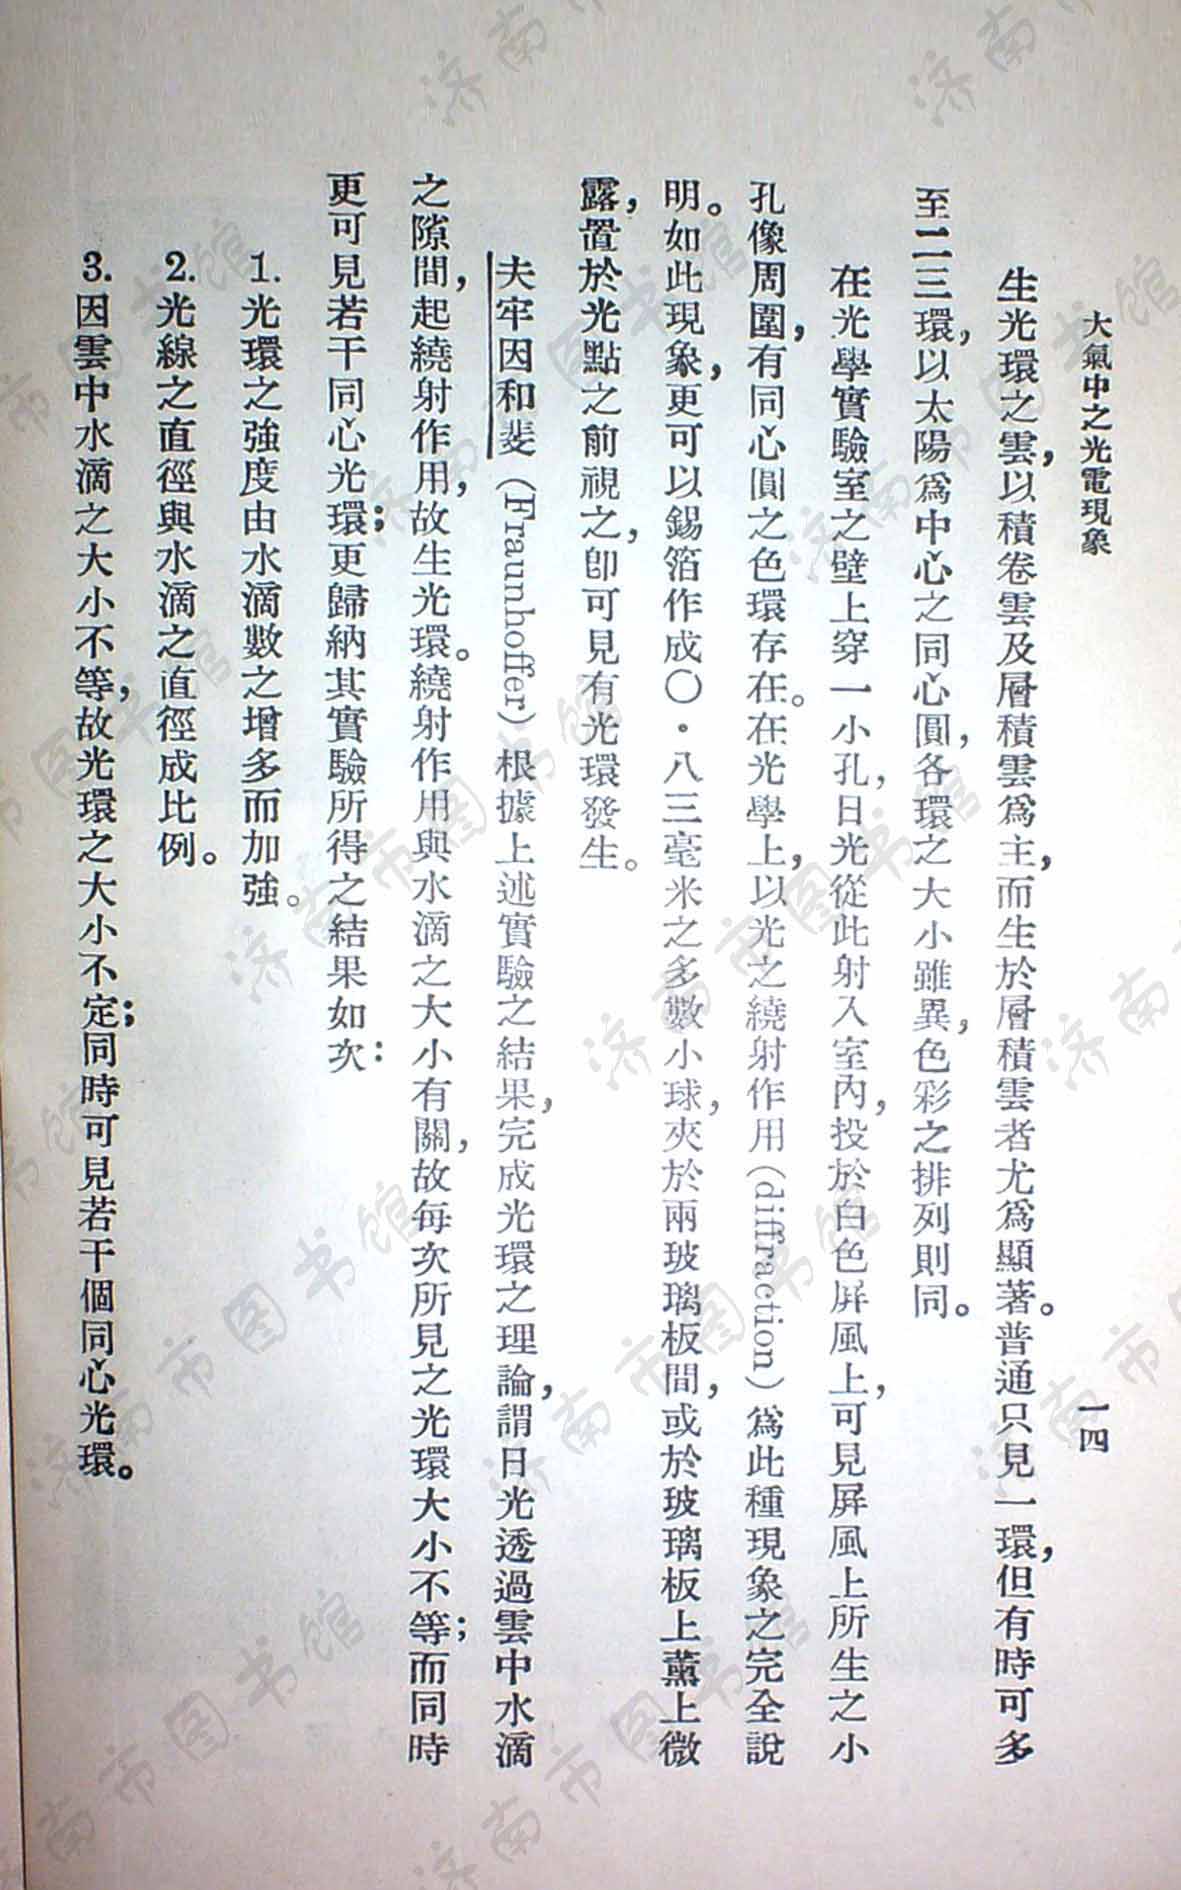 大氣中之光電現象
一四
生光環之雲，以積卷雲及層積雲爲主，而生於層積雲者尤爲顯著。普通只見一環，但有時可多
至二三環，以太陽爲中心之同心圓，各環之大小雖異，色彩之排列則同。
在光學實驗室之壁上穿一小孔，日光從此射入室內，投於白色屏風上，可見屏風上所生之小
孔像周圍，有同心圓之色環存在。在光學上，以光之繞射作用(diffraction)爲此種現象之完全說
明。如此現象，更可以錫箔作成〇・八三毫米之多數小球，夾於兩玻璃板間，或於玻璃板上薰上微
露，置於光點之前視之，卽可見有光環發生。
夫牢因和斐(Fraunhoffer)根據上述實驗之結果，完成光環之理論，謂日光透過雲中水滴
之隙間，起繞射作用，故生光環。繞射作用與水滴之大小有關，故每次所見之光環大小不等；而同時
更可見若干同心光環；更歸納其實驗所得之結果如次：
1. 光環之強度由水滴數之增多而加強。
2. 光線之直徑與水滴之直徑成比例。
3. 因雲中水滴之大小不等，故光環之大小不定；同時可見若干個同心光環。
济南市图书馆